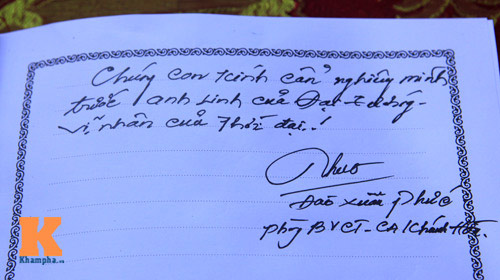 Chúng con kính cẩn nghiêng mình
trước anh linh của Đại tướng -
vị nhân của thời đại.!
Đào Xuân Phúc
Phòng BVCT - CA Khánh Hòa.
K
Khampha.vn